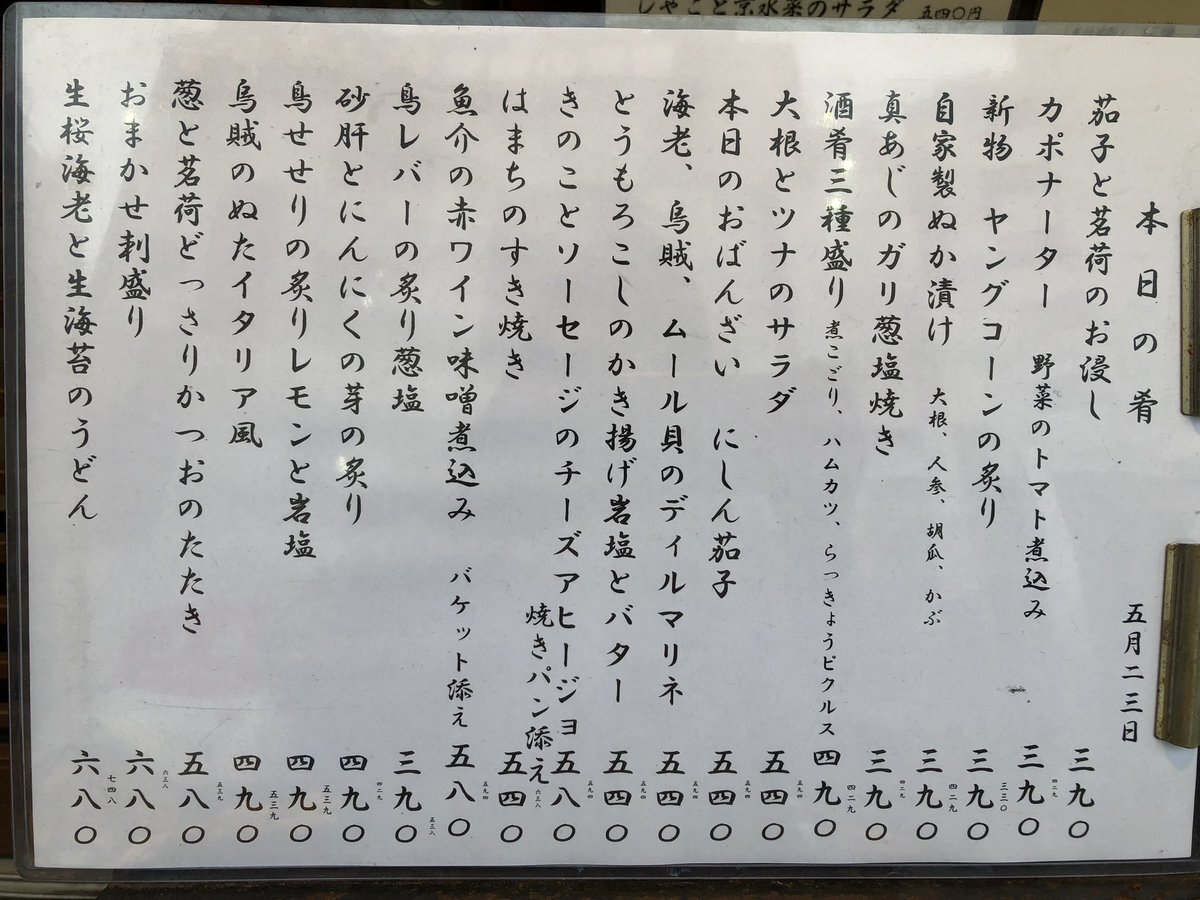 しゃこと京水菜のサラダ 五四〇円
本日の肴 五月二三日
茄子と茗荷のお浸し 三九〇 四二九
カポナーター 野菜のトマト煮込み 三九〇 三三〇
新物 ヤングコーンの炙り 三九〇 四二九
自家製ぬか漬け 大根、人参、胡瓜、かぶ 三九〇 四二九
真あじのガリ葱塩焼き 三九〇 四二九
酒肴三種盛り 煮こごり、ハムカツ、らっきょうピクルス 四九〇 五九四
大根とツナのサラダ 五四〇 五九四
本日のおばんざい にしん茄子 五四〇 五九四
海老、烏賊、ムール貝のディルマリネ 五四〇 五九四
とうもろこしのかき揚げ岩塩とバター 五四〇 五九四
きのことソーセージのチーズアヒージョ 焼きパン添え 五八〇 六三八
はまちのすき焼き 五四〇 五九四
魚介の赤ワイン味噌煮込み バケット添え 五八〇 五三八
鳥レバーの炙り葱塩 三九〇 四二九
砂肝とにんにくの芽の炙り 四九〇 五三九
鳥せせりの炙りレモンと岩塩 四九〇 五三九
烏賊のぬたイタリア風 四九〇 五三九
葱と茗荷どっさりかつおのたたき 五八〇 六三八
おまかせ刺盛り 六八〇 七四八
生桜海老と生海苔のうどん 六八〇